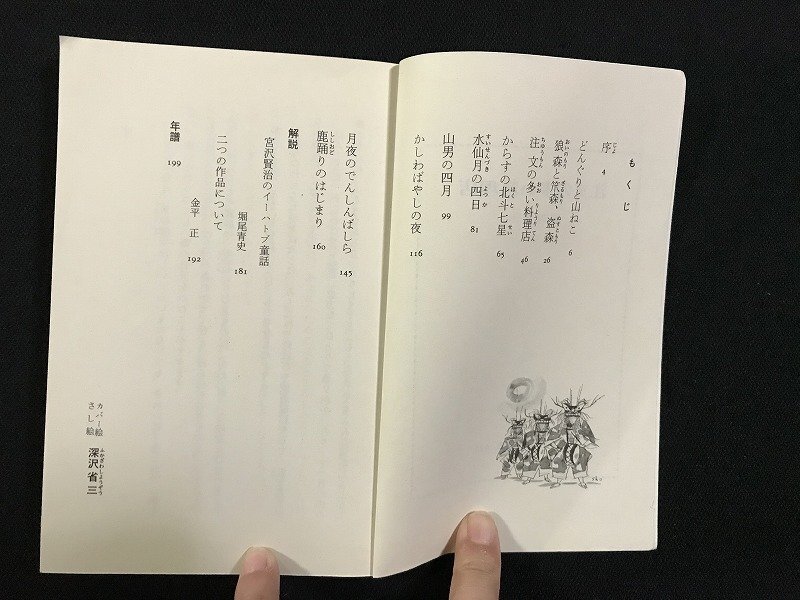 もくじ
序 4
どんぐりと山ねこ 6
狼森と笊森、盗森 26
注文の多い料理店 46
からすの北斗七星 65
水仙月の四日 81
山男の四月 99
かしわばやしの夜 116
月夜のでんしんばしら 145
鹿踊りのはじまり 160
解説
宮沢賢治のイーハトブ童話
堀尾青史 181
二つの作品について
金平 正 192
年譜 199
カバー絵
さし絵 深沢省三